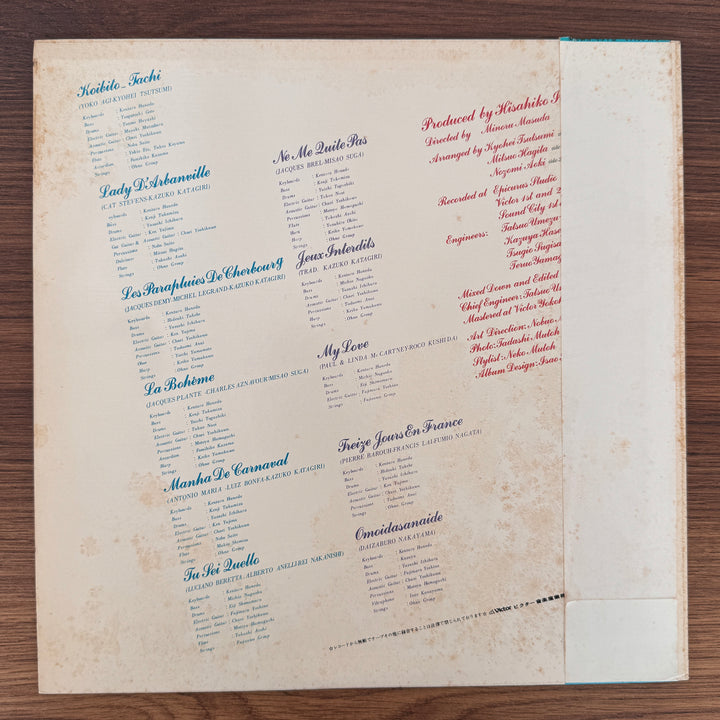 Koibito_Tachi
(YOKO AGI-KYOHEI TSUTSUMI)
Keyboards : Kentaro Haneda
Bass
Drums
Electric Guitar
Acoustic Guitar : Chuei Yoshikawa
Percussions : Nobu Saito
Flute
Accordion : Fumihiko Kazama
Strings : Ohno Group
Lady D'Arbanville
(CAT STEVENS-KAZUKO KATAGIRI)
eyboards : Kentaro Haneda
Bass : Kenji Takamizu
Drums : Yasushi Ichihara
Electric Guitar : Ken Yajima
Gut Guitar & Acoustic Guitar : Chuei Yoshikawa
Percussions : Nobu Saito
Dulcimer : Mitsuo Hagita
Flute : Takashi Asahi
Strings : Ohno Group
Les Parapluies De Cherbourg
(JACQUES DEMY-MICHEL LEGRAND-KAZUKO KATAGIRI)
Keyboards : Kentaro Haneda
Bass : Hideaki Takebe
Drums : Yasushi Ichihara
Electric Guitar : Ken Yajima
Acoustic Guitar : Chuei Yoshikawa
Percussions : Tadaomi Anai
Sax
Harp : Keiko Yamakawa
Strings : Ohno Group
La Bohème
(JACQUES PLANTE-CHARLES AZNAVOUR-MISAO SUGA)
Keyboards : Kentaro Haneda
Bass : Kenji Takamizu
Drums : Yuichi Togashiki
Electric Guitar : Tukao Nosé
Acoustic Guitar : Chuei Yoshikawa
Percussions : Motoya Hamaguchi
Accordion : Fumihiko Kazama
Harp : Keiko Yamakawa
Strings : Ohno Group
Manha De Carnaval
(ANTONIO MARIA-LUIZ BONFA-KAZUKO KATAGIRI)
Keyboards : Kentaro Haneda
Bass : Kenji Takamizu
Drums : Yasushi Ichihara
Electric Guitar : Ken Yajima
Acoustic Guitar : Chuei Yoshikawa
Percussions : Nobu Saito
Flute
Strings : Ohno Group
Tu Sei Quello
(LUCIANO BERETTA-ALBERTO ANELLI-REI NAKANISHI)
Keyboards : Kentaro Haneda
Bass : Michio Nagaoka
Drums : Eiji Shimamura
Electric Guitar
Acoustic Guitar : Chuei Yoshikawa
Percussions : Motoya Hamaguchi
Flute : Takashi Asahi
Strings : Fujinuma Group
Ne Me Quite Pas
(JACQUES BREL-MISAO SUGA)
Keyboards : Kentaro Haneda
Bass : Kenji Takamizu
Drums : Yuichi Togashiki
Electric Guitar : Tukao Nosé
Acoustic Guitar : Chuei Yoshikawa
Percussions : Motoya Hamaguchi
Flute : Takashi Asahi
Oboe
Harp : Keiko Yamakawa
Strings : Ohno Group
Jeux Interdits
(TRAD. KAZUKO KATAGIRI)
Keyboards : Kentaro Haneda
Bass : Michio Nagaoka
Drums : Yasushi Ichihara
Acoustic Guitar : Chuei Yoshikawa
Percussions : Tadaomi Anai
Harp : Keiko Yamakawa
Strings : Ohno Group
My Love
(PAUL & LINDA Mc CARTNEY-ROCO KUSHIDA)
Keyboards : Kentaro Haneda
Bass : Michio Nagaoka
Drums : Eiji Shimamura
Electric Guitar
Strings : Fujinuma Group
Treize Jours En France
(PIERRE BAROUH-FRANCIS LAI-FUMIO NAGATA)
Keyboards : Kentaro Haneda
Bass : Hideaki Takebe
Drums : Yasushi Ichihara
Electric Guitar : Ken Yajima
Acoustic Guitar : Chuei Yoshikawa
Percussions : Tadaomi Anai
Strings : Ohno Group
Omoidasanaide
(DAIZABURO NAKAYAMA)
Keyboards : Kentaro Haneda
Bass
Drums : Yasushi Ichihara
Electric Guitar
Acoustic Guitar : Chuei Yoshikawa
Percussions : Motoya Hamaguchi
Vibraphone
Strings : Fujinuma Group
Produced by Hisahiko
Directed by Minoru Masuda
Arranged by Kyohei Tsutsumi
Mitsuo Hagita
Nozomi Aoki
Recorded at Epicurus Studio
Victor 1st and 2
Sound City 1st
Engineers: Tatsuo Umezu
Kazuya Hase
Tsugio Sugisa
Teruo Yamag
Mixed Down and Edited
Chief Engineer: Tatsuo U
Mastered at Victor Yokoh
Art Direction: Nobuo
Photo: Tadashi Mutoh
Stylist: Neko Mutoh
Album Design: Isao
☆レコードから無断でテープその他に録音することは法律で禁じられております☆ Victor ビクター音楽産業株